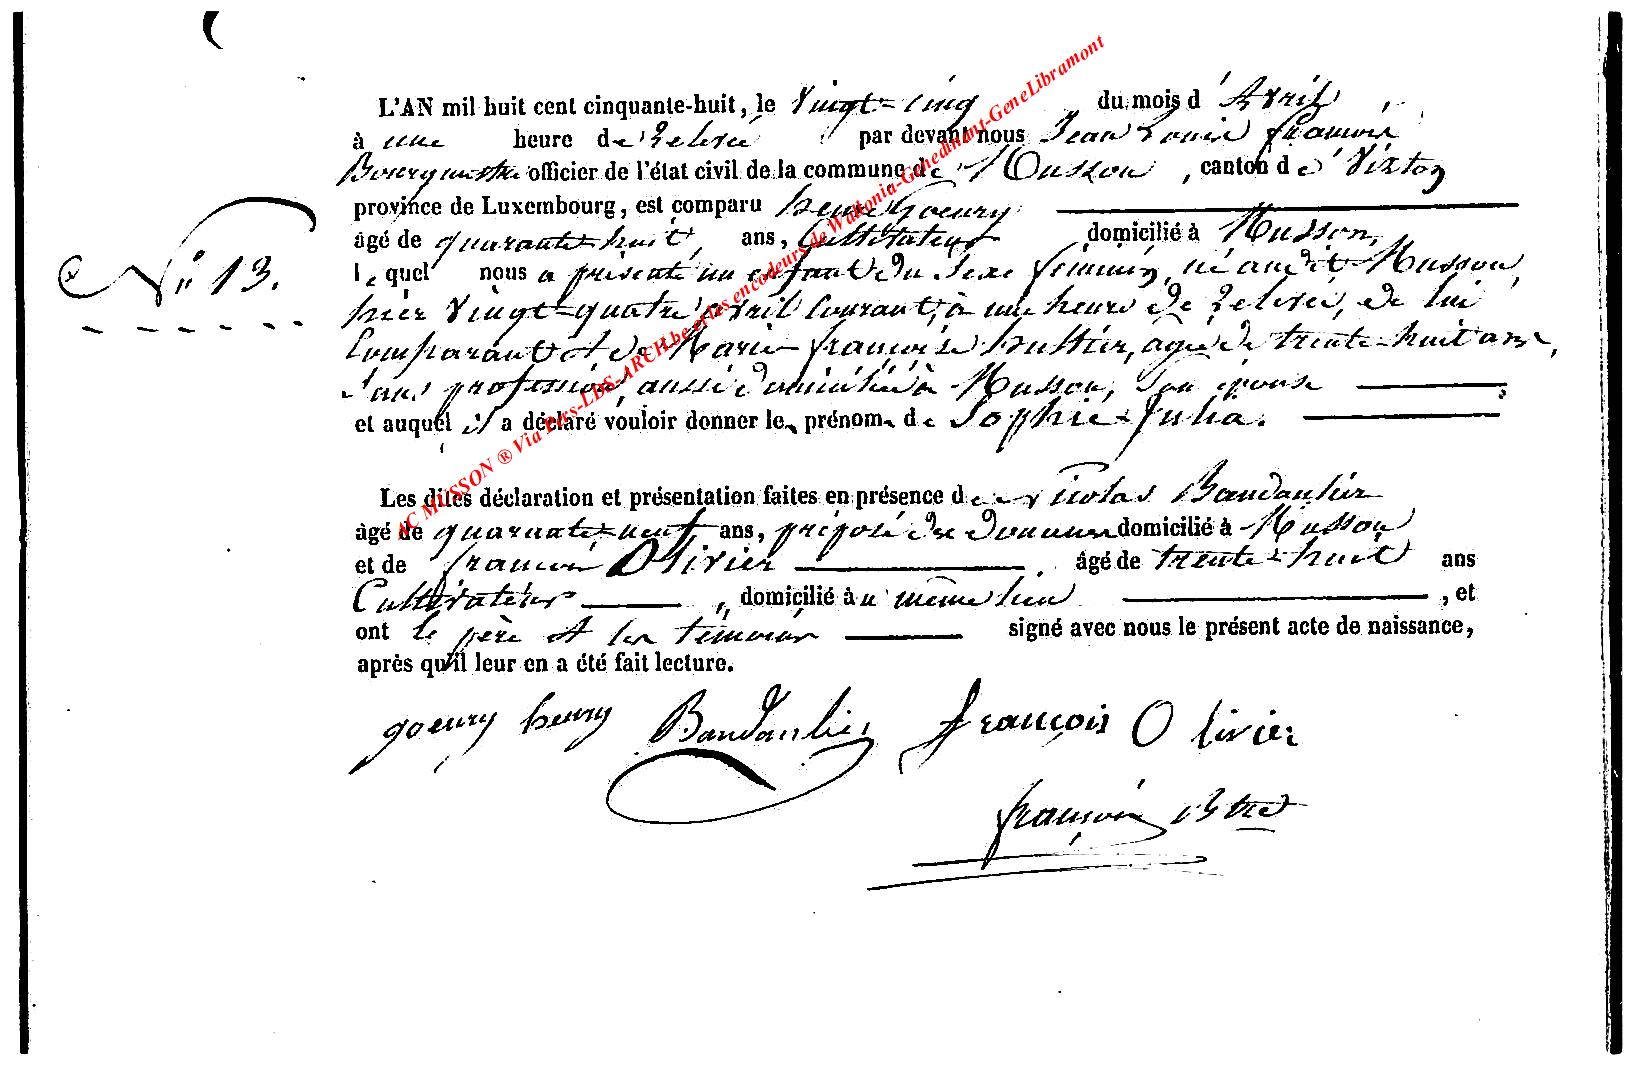 L'AN mil huit cent cinquante-huit, le Vingt-cinq du mois d'Avril
à une heure de relevée par devant nous Jean Louis françois
Bourgmestre officier de l'état civil de la commune de Musson, canton de Virton
province de Luxembourg, est comparu henri Goeury
âgé de quarante-huit ans, Cultivateur domicilié à Musson,
N° 13.
lequel nous a présenté un enfant du sexe féminin, né audit Musson,
hier Vingt-quatre avril courant, à une heure de relevée, de lui
Comparant et de Marie françoise huttier, agée de trente-huit ans,
sans profession, aussi domiciliée à Musson, son épouse ;
et auquel il a déclaré vouloir donner le prénom de Sophie-Julia.
Les dites déclaration et présentation faites en présence de Nicolas Baudaulier
âgé de quarante-neuf ans, préposé des douanes domicilié à Musson
et de françois Olivier, âgé de trente-huit ans
Cultivateur, domicilié au même lieu, et
ont le père et les témoins signé avec nous le présent acte de naissance,
après qu'il leur en a été fait lecture.
goeury henry Baudaulier françois Olivier
françois Btre
AC MUSSON ® Via Pers-LDS-ARCH.be et les encodeurs de Wallonia-Genedinant-GeneLibramont